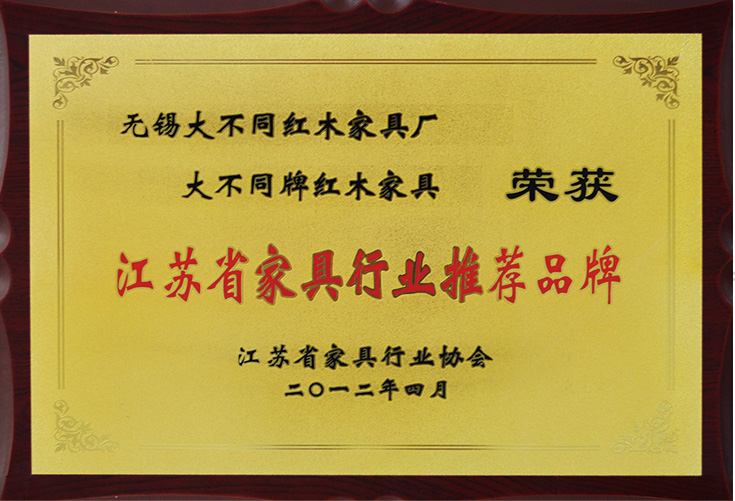 无锡大不同红木家具厂
大不同牌红木家具 荣获
江苏省家具行业推荐品牌
江苏省家具行业协会
二〇一二年四月